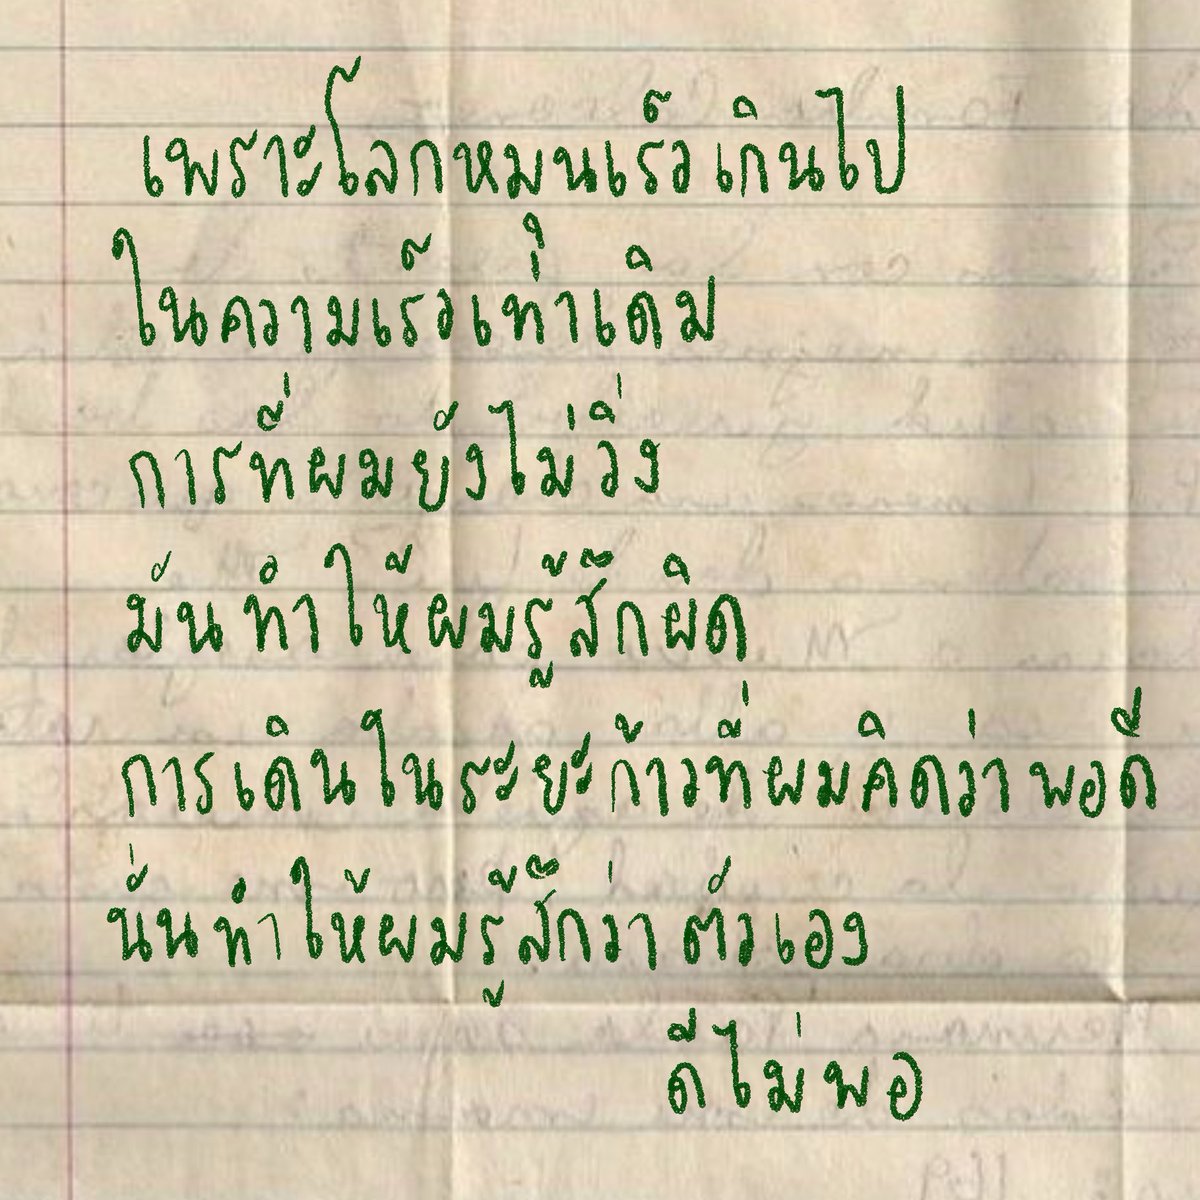 เพราะโลกหมุนเร็วเกินไป
ในความเร็วเท่าเดิม
การที่ผมยังไม่วิ่ง
มันทำให้ผมรู้สึกผิด
การเดินในระยะก้าวที่ผมคิดว่าพอดี
นั่นทำให้ผมรู้สึกว่าตัวเอง
ดีไม่พอ